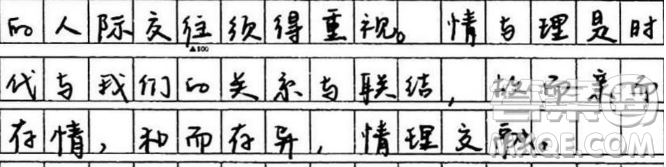 的人际交往须得重视。情与理是时
▲800
代与我们的关系与联结，故而亲而
存情，和而存异，情理交融。